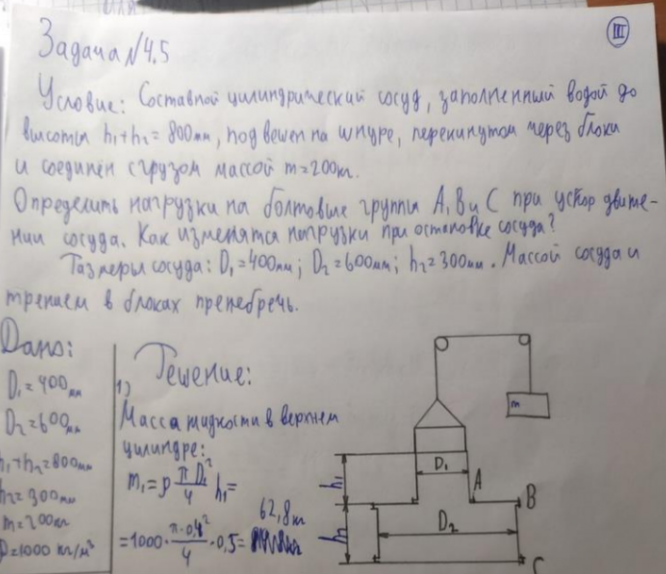 III
Задача №4.5
Условие: Составной цилиндрический сосуд, заполненный водой до
высоты h₁+h₂=800мм, подвешен на шнуре, перекинутом через блоки
и соединён с грузом массой m=200кг.
Определить нагрузки на болтовые группы А, В и С при ускор движе-
нии сосуда. Как изменятся нагрузки при остановке сосуда?
Размеры сосуда: D₁=400мм; D₂=600мм; h₂=300мм. Массой сосуда и
трением в блоках пренебречь.
Дано:
D₁=400мм
D₂=600мм
h₁+h₂=800мм
h₂=300мм
m=200кг
ρ=1000 кг/м³
1) Решение:
Масса жидкости в верхнем
цилиндре:
m₁=ρ πD₁²/4 h₁=
=1000·π·0,4²/4·0,5= 62,8кг
m
D₁
h₁
A
B
D₂
h₂
C